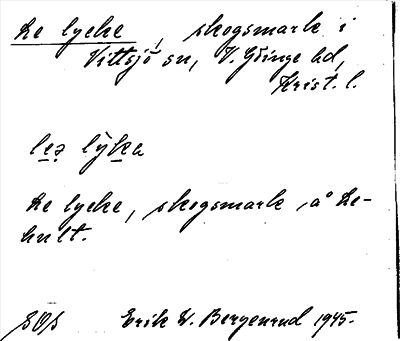 Le lycke, skogsmark i
Vittsjö sn, V. Göinge hd,
Krist. l.
leə lỳka
Le lycke, skogsmark å Le-
hult.
SOS Erik W. Bergenrud 1945.